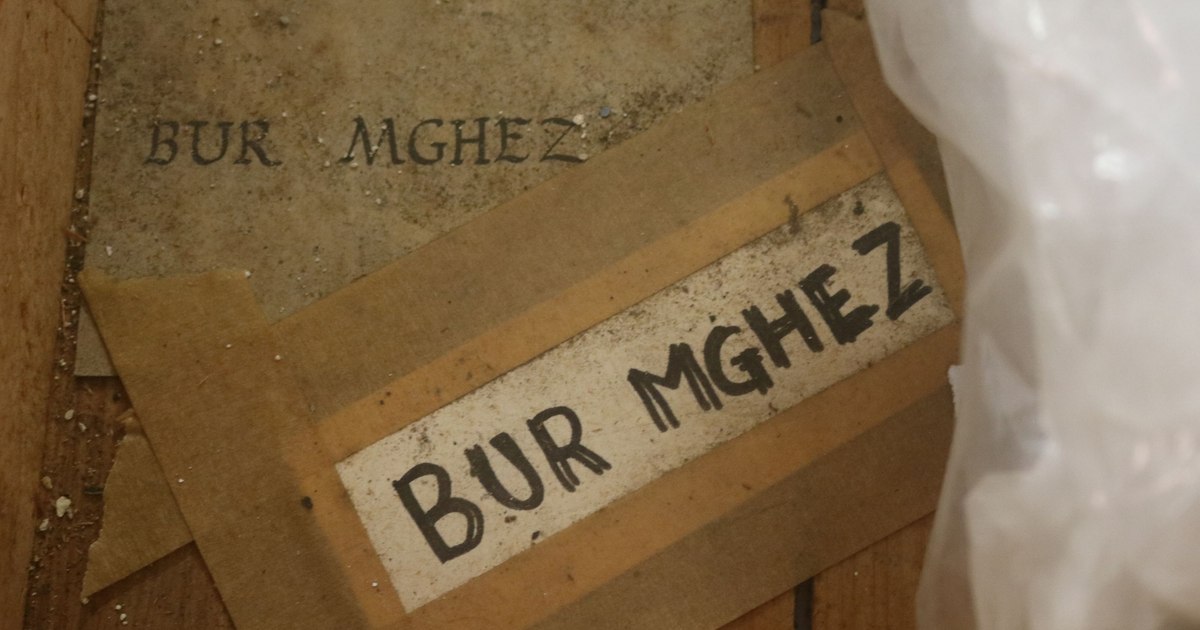 BUR MGHEZ
BUR MGHEZ